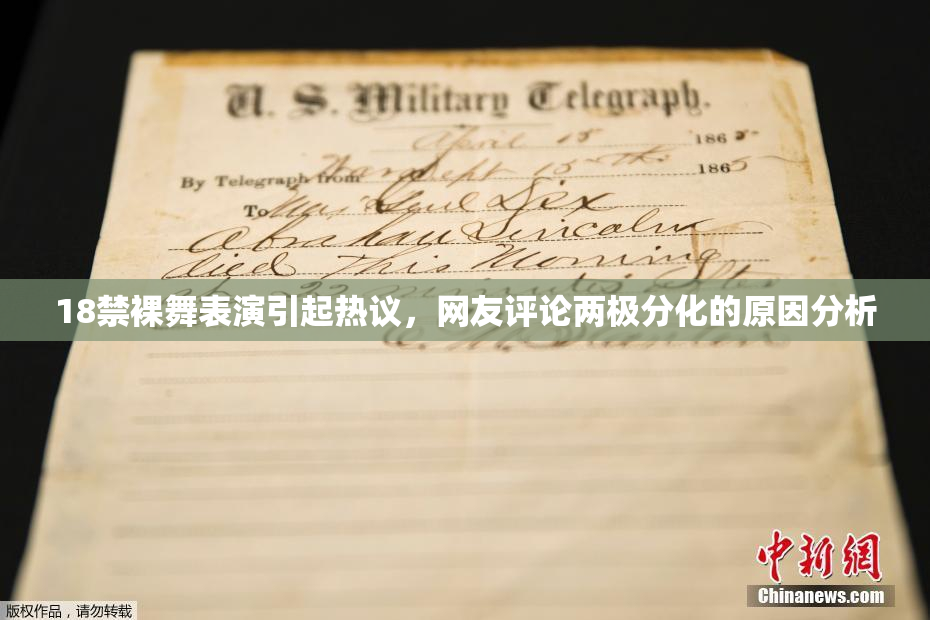 U. S. Military Telegraph.
April 15 1865
By Telegraph from War Dept 15th 1865
To Maj Genl Dix
Abraham Lincoln
died This Morning
at 22 minutes after
18禁裸舞表演引起热议，网友评论两极分化的原因分析
E. M. Stanton
中新网
Chinanews.com
版权作品，请勿转载